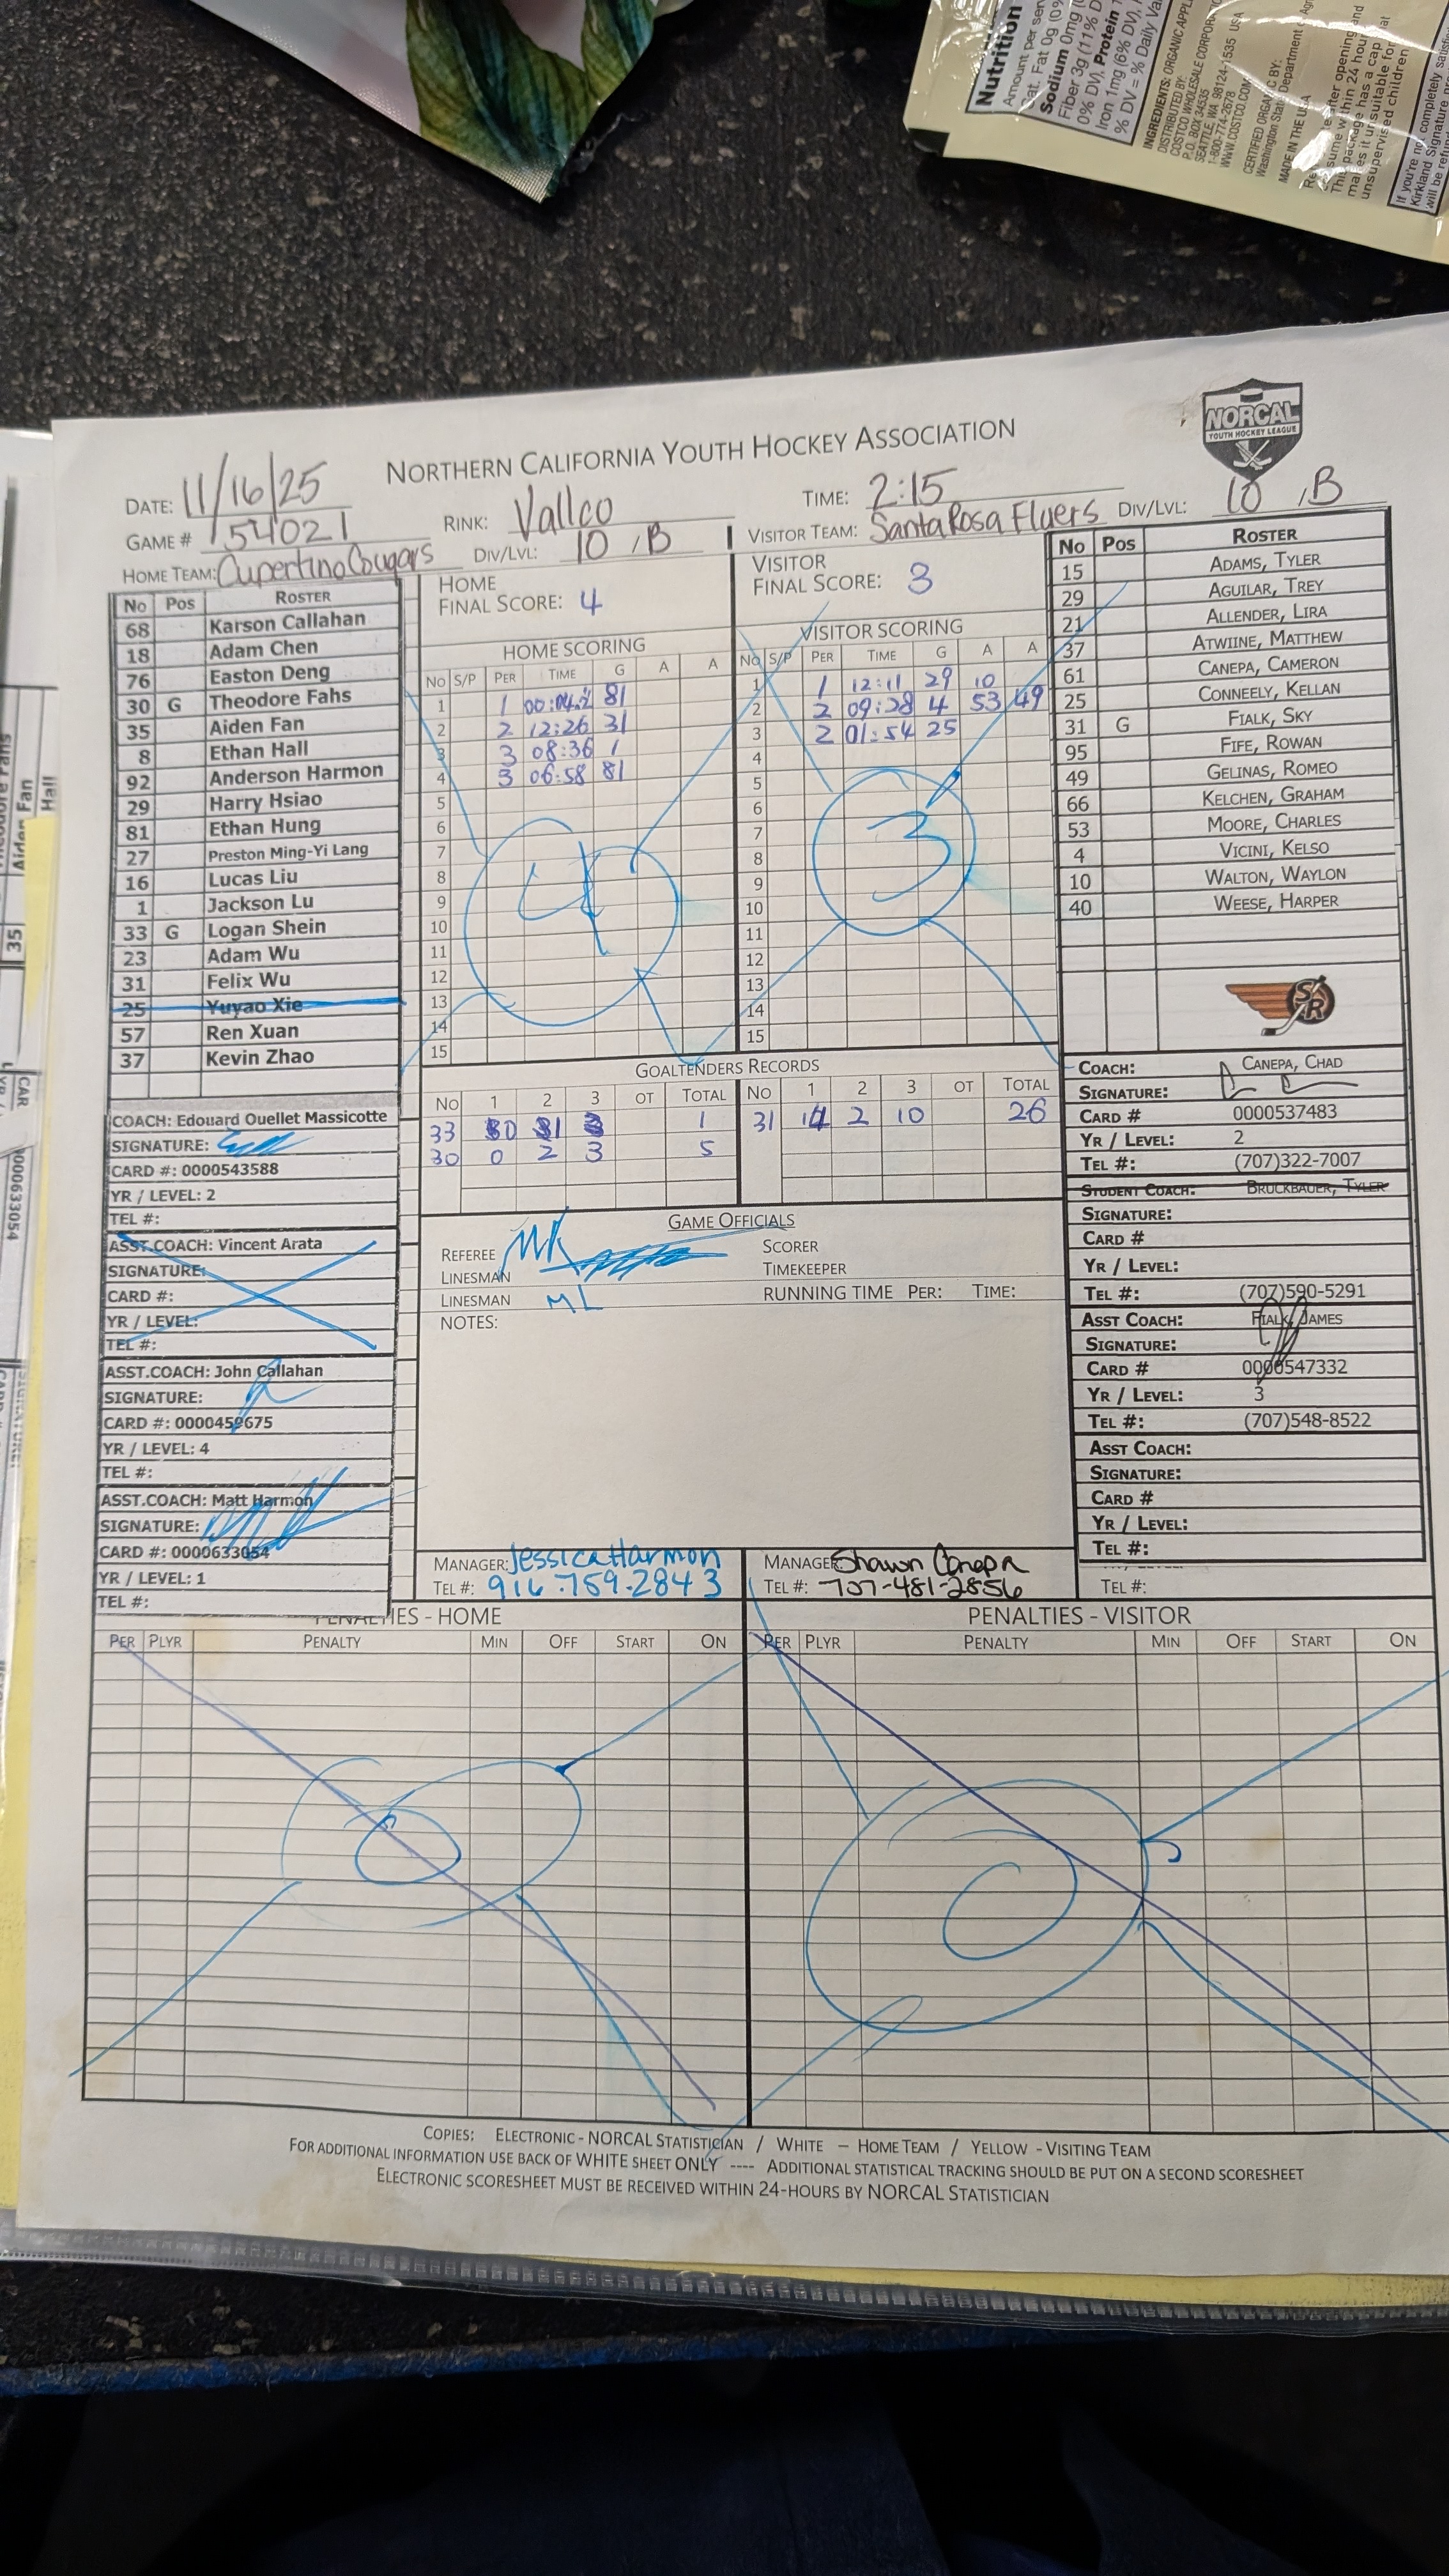 Nutrition
Amount per ser
Sat. Fat 0g (0%
Sodium 0mg
Fiber 3g (11% D
0% DV), Protein
Iron 1mg (6% DV),
% DV = % Daily Va
INGREDIENTS: ORGANIC APPL
DISTRIBUTED BY:
COSTCO WHOLESALE CORPOR
P.O. BOX 34535
SEATTLE, WA 98124-1535 USA
1-800-774-2678
WWW.COSTCO.COM
CERTIFIED ORGANIC BY:
Washington State Department
MADE IN THE USA
NORCAL
YOUTH HOCKEY LEAGUE
NORTHERN CALIFORNIA YOUTH HOCKEY ASSOCIATION
DATE: 11/16/25
RINK: Vallco
TIME: 2:15
GAME # 54021
HOME TEAM: Cupertino Cougars DIV/LVL: 10 , B
VISITOR TEAM: Santa Rosa Flyers DIV/LVL: 10 , B
No Pos ROSTER
68 Karson Callahan
18 Adam Chen
76 Easton Deng
30 G Theodore Fahs
35 Aiden Fan
8 Ethan Hall
92 Anderson Harmon
29 Harry Hsiao
81 Ethan Hung
27 Preston Ming-Yi Lang
16 Lucas Liu
1 Jackson Lu
33 G Logan Shein
23 Adam Wu
31 Felix Wu
25 Yuyao Xie
57 Ren Xuan
37 Kevin Zhao
COACH: Edouard Ouellet Massicotte
SIGNATURE:
CARD #: 0000543588
YR / LEVEL: 2
TEL #:
ASST.COACH: Vincent Arata
SIGNATURE:
CARD #:
YR / LEVEL:
TEL #:
ASST.COACH: John Callahan
SIGNATURE:
CARD #: 0000459675
YR / LEVEL: 4
TEL #:
ASST.COACH: Matt Harmon
SIGNATURE:
CARD #: 0000633054
YR / LEVEL: 1
TEL #:
HOME
FINAL SCORE: 4
VISITOR
FINAL SCORE: 3
HOME SCORING
No S/P PER TIME G A A
1 1 00:04.2 81
2 2 12:26 31
3 3 08:36 1
4 3 06:58 81
5
6
7
8
9
10
11
12
13
14
15
4
VISITOR SCORING
No S/P PER TIME G A A
1 1 12:11 29 10
2 2 09:28 4 53 49
3 2 01:54 25
4
5
6
7
8
9
10
11
12
13
14
15
3
GOALTENDERS RECORDS
No 1 2 3 OT TOTAL No 1 2 3 OT TOTAL
33 1 31 14 2 10 26
30 0 2 3 5
GAME OFFICIALS
REFEREE
SCORER
LINESMAN
TIMEKEEPER
LINESMAN ML
RUNNING TIME PER: TIME:
NOTES:
MANAGER: Jessica Harmon
TEL #: 916.759.2843
MANAGER: Shawn Canepa
TEL #: 707-481-2856
No Pos ROSTER
15 ADAMS, TYLER
29 AGUILAR, TREY
21 ALLENDER, LIRA
37 ATWIINE, MATTHEW
61 CANEPA, CAMERON
25 CONNEELY, KELLAN
31 G FIALK, SKY
95 FIFE, ROWAN
49 GELINAS, ROMEO
66 KELCHEN, GRAHAM
53 MOORE, CHARLES
4 VICINI, KELSO
10 WALTON, WAYLON
40 WEESE, HARPER
SR
COACH: CANEPA, CHAD
SIGNATURE:
CARD # 0000537483
YR / LEVEL: 2
TEL #: (707)322-7007
STUDENT COACH: BRUCKBAUER, TYLER
SIGNATURE:
CARD #
YR / LEVEL:
TEL #: (707)590-5291
ASST COACH: FIALK, JAMES
SIGNATURE:
CARD # 0000547332
YR / LEVEL: 3
TEL #: (707)548-8522
ASST COACH:
SIGNATURE:
CARD #
YR / LEVEL:
TEL #:
TEL #:
PENALTIES - HOME
PER PLYR PENALTY MIN OFF START ON
0
PENALTIES - VISITOR
PER PLYR PENALTY MIN OFF START ON
0
COPIES: ELECTRONIC - NORCAL STATISTICIAN / WHITE – HOME TEAM / YELLOW - VISITING TEAM
FOR ADDITIONAL INFORMATION USE BACK OF WHITE SHEET ONLY ---- ADDITIONAL STATISTICAL TRACKING SHOULD BE PUT ON A SECOND SCORESHEET
ELECTRONIC SCORESHEET MUST BE RECEIVED WITHIN 24-HOURS BY NORCAL STATISTICIAN